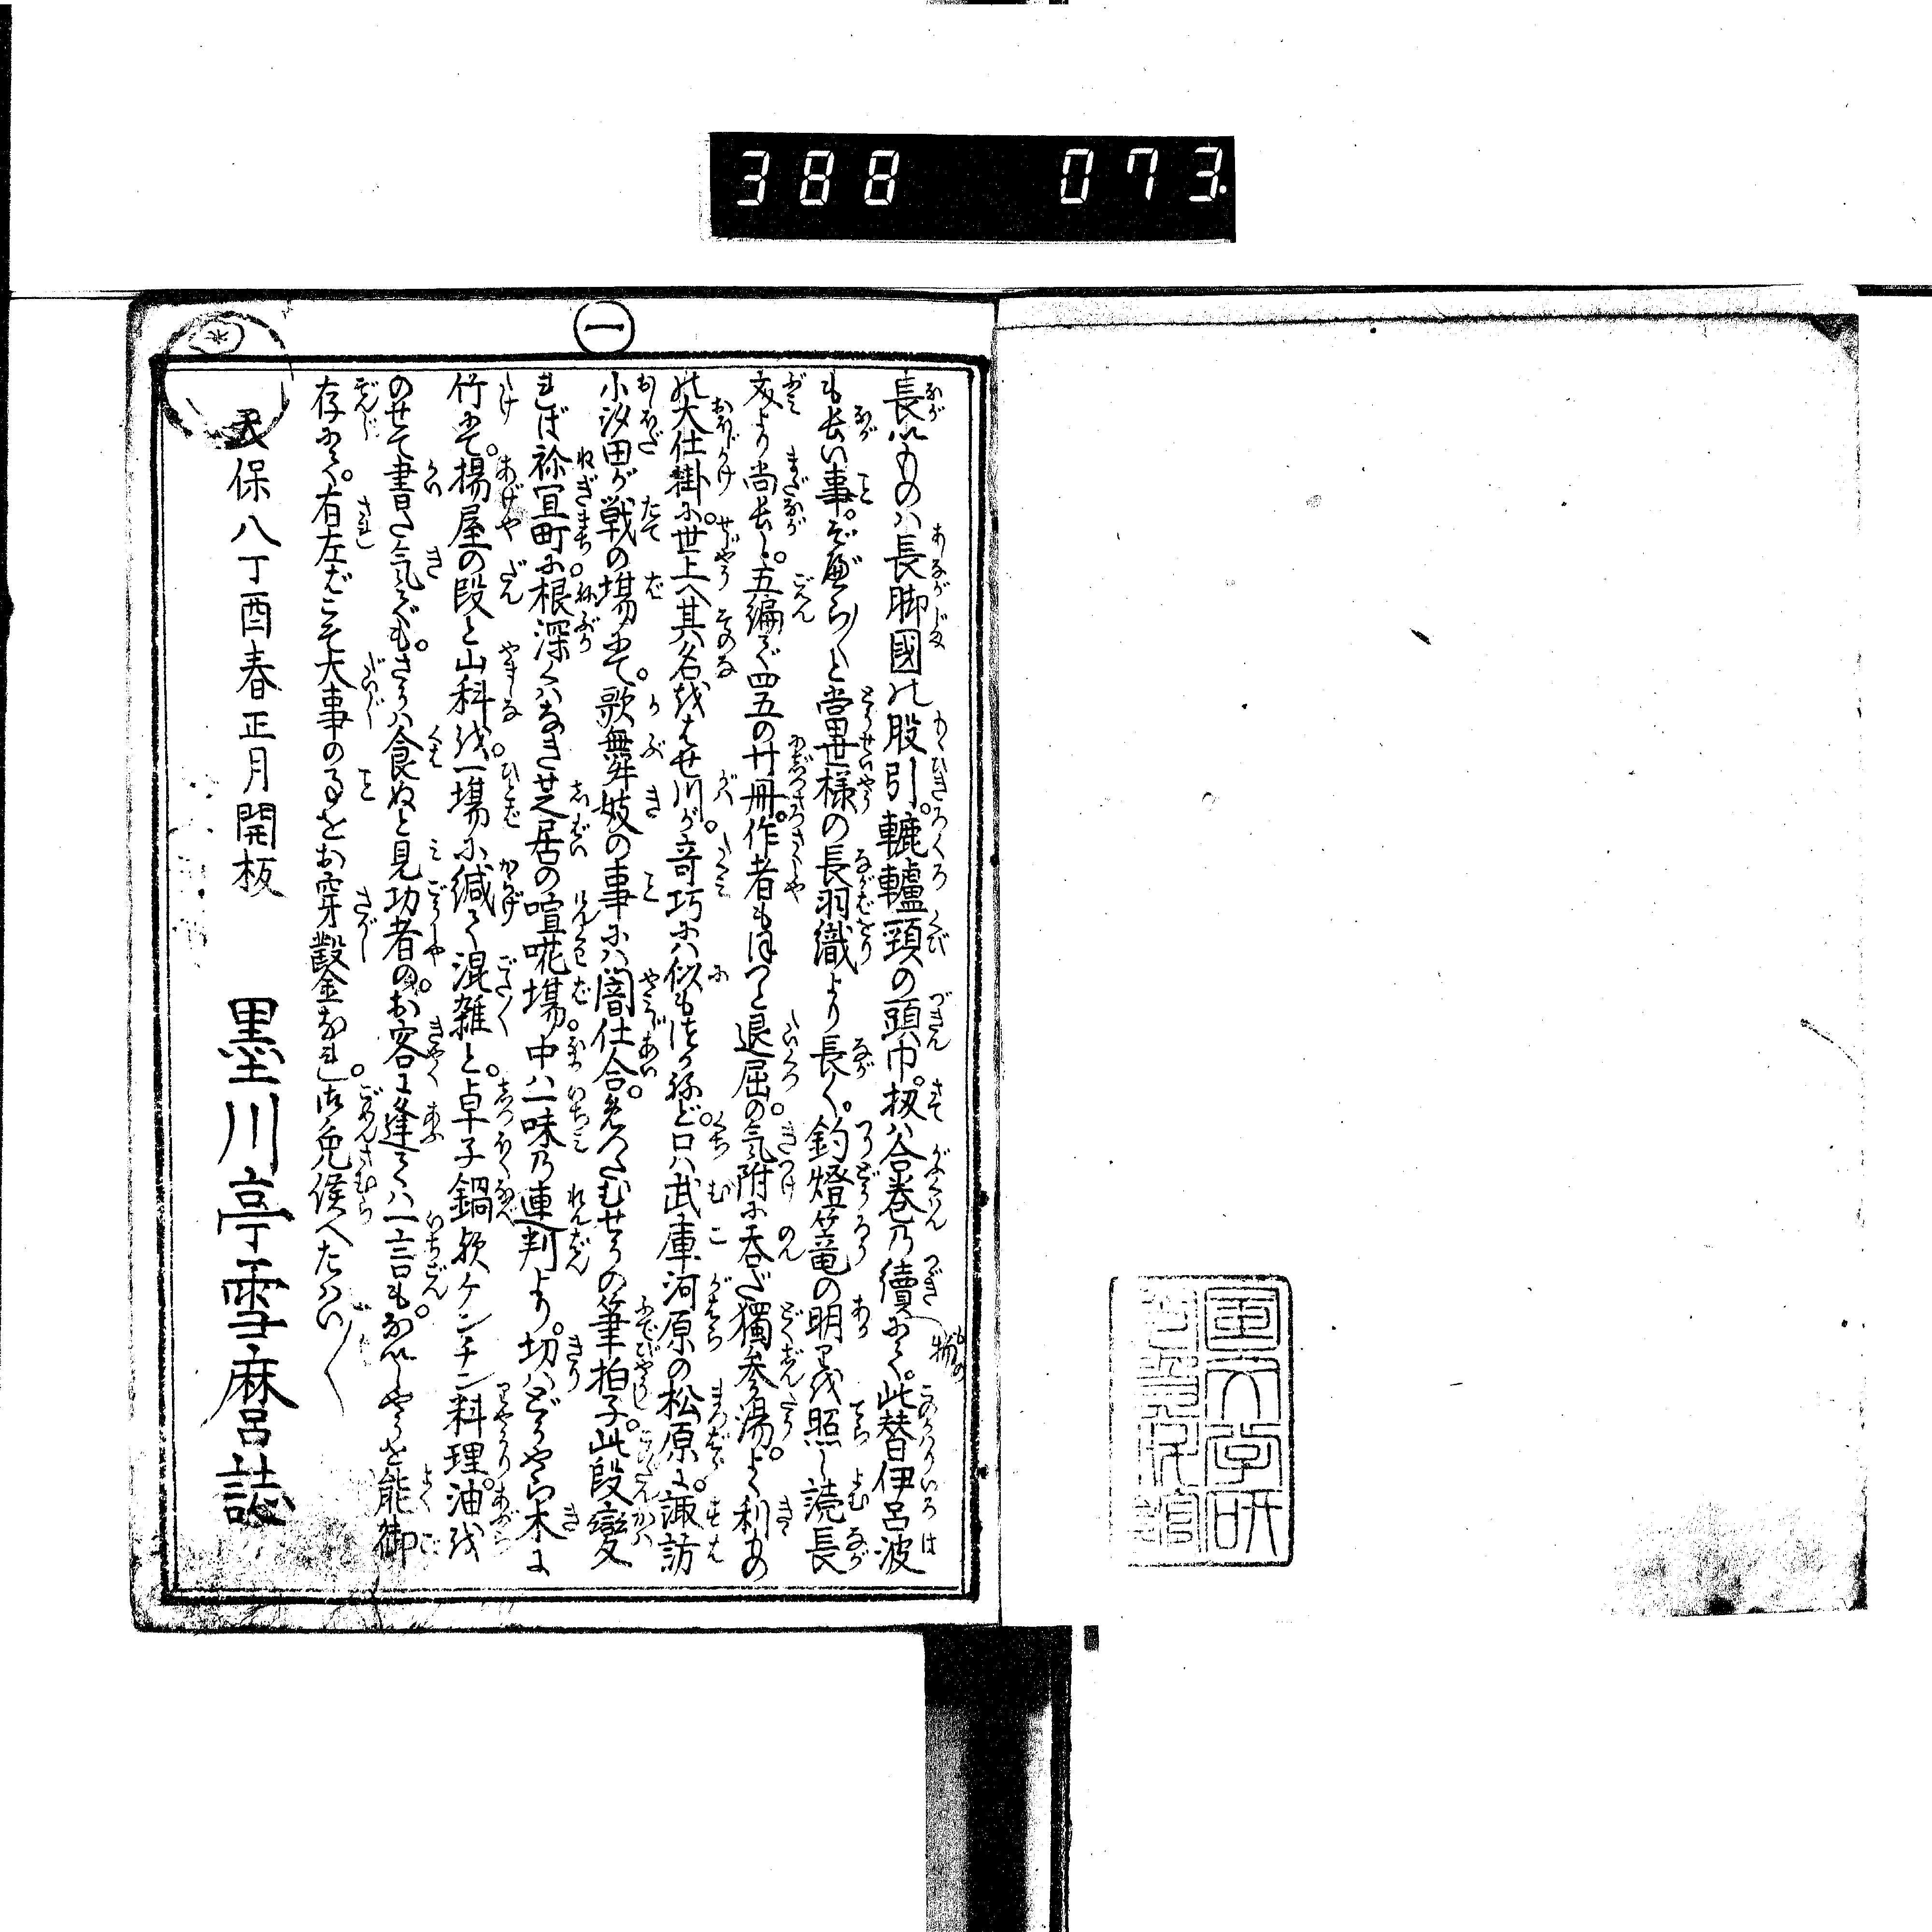 388 073
一
長いものハ長脚國の股引。轆轤頸の頭巾。扨ハ合巻乃續物にて。此替伊呂波
も長い事。ぞべら〳〵と當世様の長羽織より長く。釣燈篭の明りを照し読長
文より尚長し。五編で四五の廿冊。作者もほつと退屈の。気附に呑だ獨参湯。よく利あ
の大仕掛に。世上へ其名をはせ川が。奇巧にハ似もつかねど。口ハ武庫河原の松原に。諏訪
小汐田が戦の場にて。歌無舞妓の事にハ闇仕合。めつたむせうの筆拍子。此段変
れば祢宜町に。根深くハなき芝居の喧哢場。中ハ一味乃連判より。切ハどうやら木に
竹にて。揚屋の段と山科を。一場に縅て混雑と。卓子鍋歟ケンチン料理。油を
のせて書た気でも。さうハ食ぬと見功者の。お客に逢てハ一言も。ないしやうを能御
存にて。有左ばこそ大事の事をお穿鑿なされ。御免候へたハい〳〵
天保八丁酉春正月開板
墨川亭雪麻呂誌